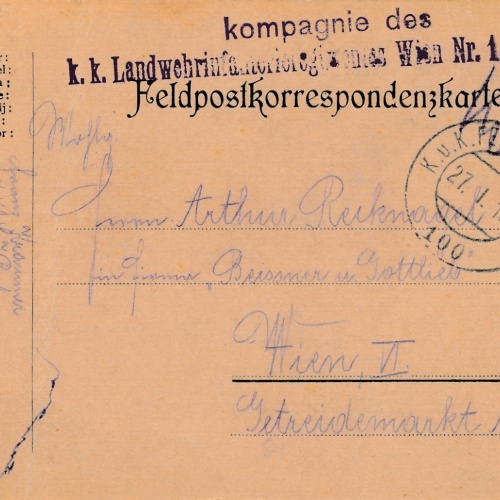 kompagnie des
k. k. Landwehrinfanterieregimentes Wien Nr. 1
Feldpostkorrespondenzkarte
K.u.K. FE
27. V.
100
Herrn Arthur Recknagel
in Firma "Beissner u. Gottlieb
Wien, VI.
Getreidemarkt